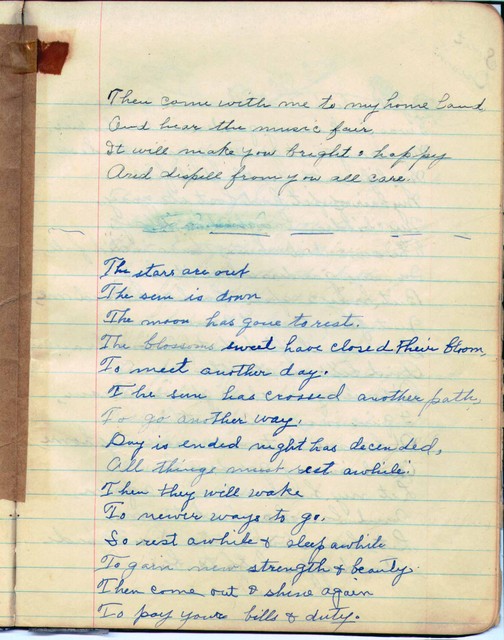 Then come with me to my home land
And hear the music fair
It will make you bright & happy
And dispill from you all care.
The stars are out
The sun is down
The moon has gone to rest.
The blossoms sweet have closed their bloom,
To meet another day.
The sun has crossed another path,
To go another way.
Day is ended night has decended,
All things must rest awhile.
Then they will wake
To newer ways to go.
So rest awhile & sleep awhile
To gain new strength & beauty.
Then come out & shine again
To pay your bills & duty.